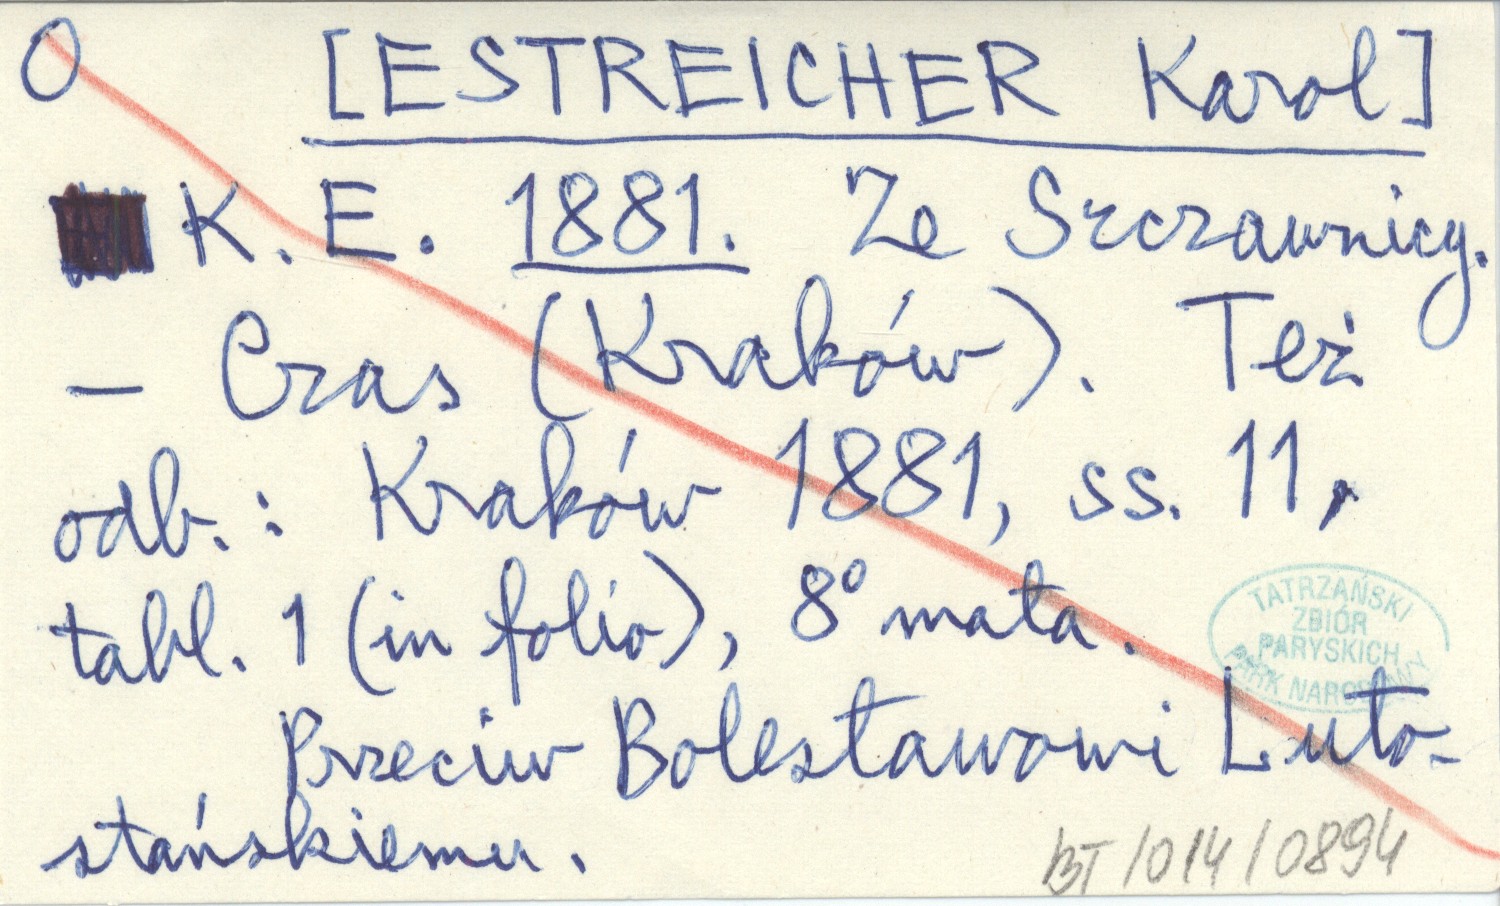 O [ESTREICHER Karol]
K. E. 1881. Ze Szczawnicy.
– Czas (Kraków). Też
odb.: Kraków 1881, ss. 11,
tabl. 1 (in folio), 8° mała.
Przeciw Bolesławowi Luto-
stańskiemu.
TATRZAŃSKI
ZBIÓR
PARYSKICH
PARK NARODOWY
BT/014/0894